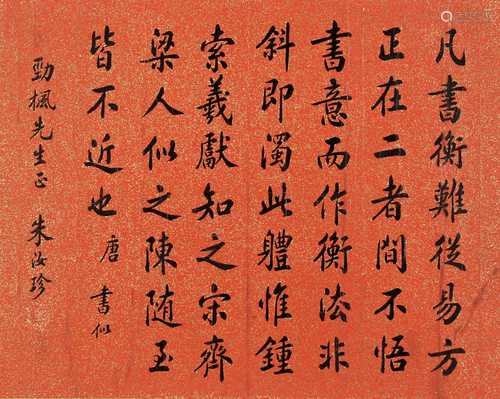 凡書衡難從易方
正在二者間不悟
書意而作衡法非
斜即濁此體惟鍾
索羲獻知之宋齊
梁人似之陳隨至
皆不近也 唐 書似
勁楓先生正 朱汝珍